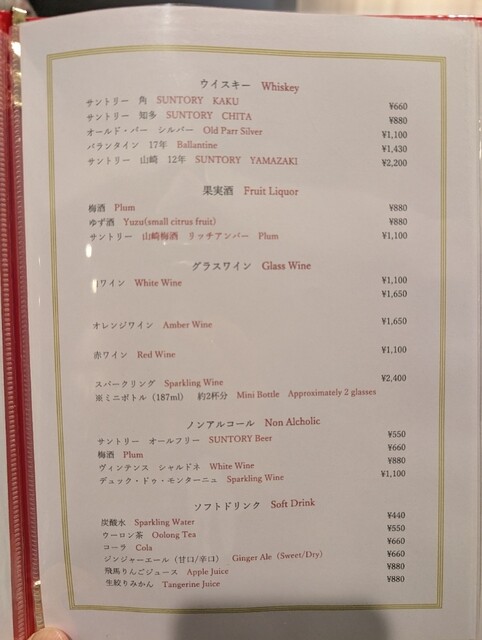 ウイスキー Whiskey
サントリー 角 SUNTORY KAKU ¥660
サントリー 知多 SUNTORY CHITA ¥880
オールド・パー シルバー Old Parr Silver ¥1,100
バランタイン 17年 Ballantine ¥1,430
サントリー 山崎 12年 SUNTORY YAMAZAKI ¥2,200
果実酒 Fruit Liquor
梅酒 Plum ¥880
ゆず酒 Yuzu(small citrus fruit) ¥880
サントリー 山崎梅酒 リッチアンバー Plum ¥1,100
グラスワイン Glass Wine
ワイン White Wine ¥1,100
¥1,650
オレンジワイン Amber Wine ¥1,650
赤ワイン Red Wine ¥1,100
スパークリング Sparkling Wine ¥2,400
※ミニボトル(187ml) 約2杯分 Mini Bottle Approximately 2 glasses
ノンアルコール Non Alcholic
サントリー オールフリー SUNTORY Beer ¥550
梅酒 Plum ¥660
ヴィンテンス シャルドネ White Wine ¥880
デュック・ドゥ・モンターニュ Sparkling Wine ¥1,100
ソフトドリンク Soft Drink
炭酸水 Sparkling Water ¥440
ウーロン茶 Oolong Tea ¥550
コーラ Cola ¥660
ジンジャーエール(甘口/辛口) Ginger Ale(Sweet/Dry) ¥660
飛馬りんごジュース Apple Juice ¥880
生絞りみかん Tangerine Juice ¥880